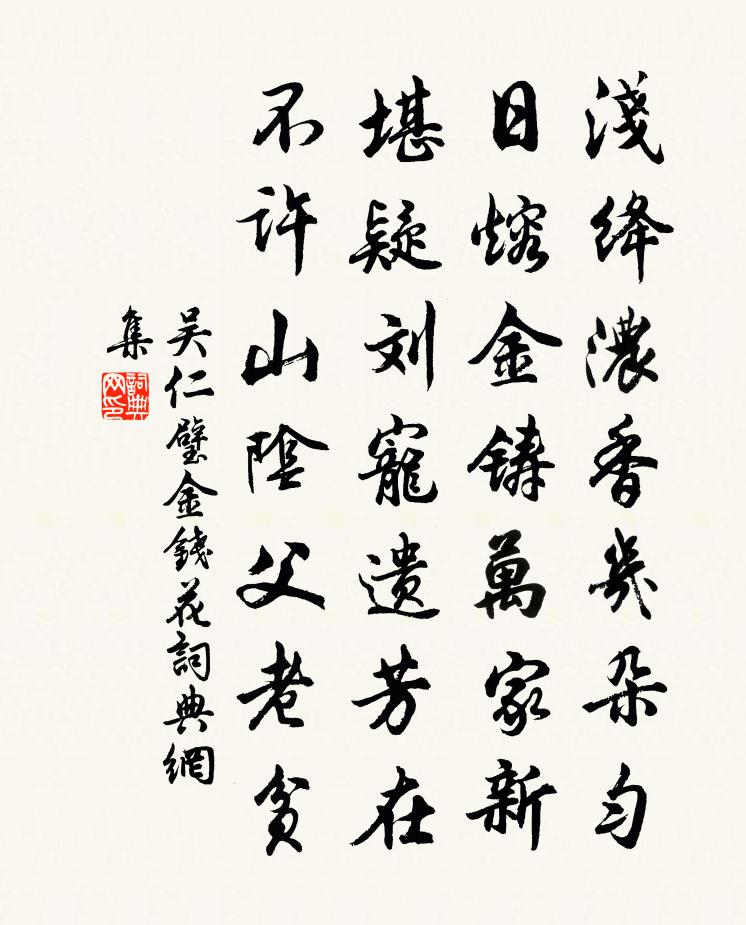 淺絳濃香幾朵勻
日熔金鑄萬家新
堪疑刘寵遺芳在
不許山陰父老貧
吴仁璧金錢花詞典網
集
詞典
网印